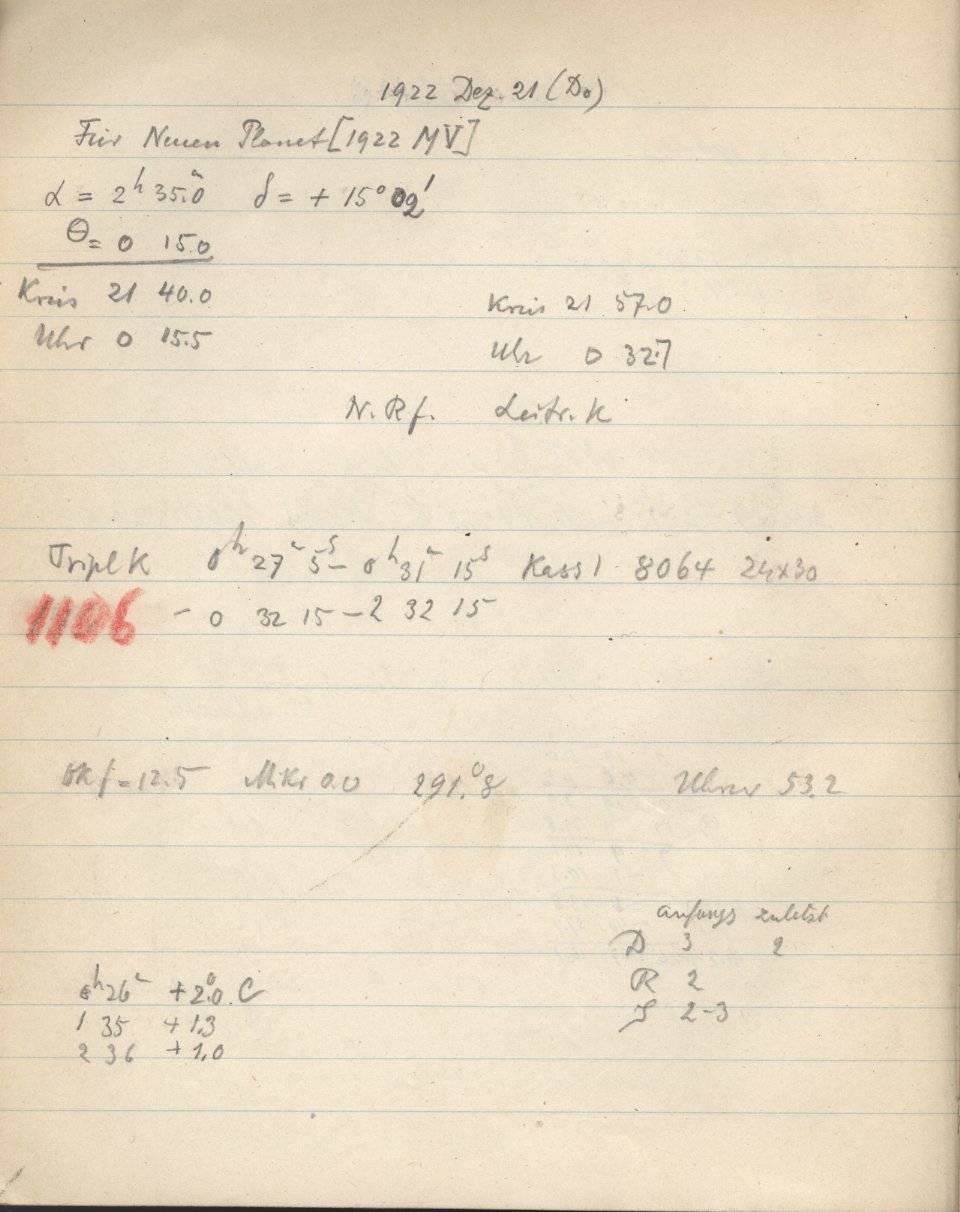 1922 Dez. 21 (Do)
Für Neuen Planet [1922 MV]
α = 2ʰ 35.ᵐ0 δ = + 15° 09'
Θ = 0 15.0
Kreis 21 40.0 Kreis 21 57.0
Uhr 0 15.5 Uhr 0 32.7
N. Rf. Leitr. K
Tripl K 0ʰ 27ᵐ 5ˢ – 0ʰ 31ᵐ 15ˢ Kass 1 8064 24x30
1106 – 0 32 15 – 2 32 15
Okf = 12.5 Mikr 0.0 291.°8 Uhrw 53.2
anfangs zuletzt
D 3 2
R 2
S 2-3
0ʰ 26ᵐ + 2.°0 C
1 35 + 1.3
2 36 + 1.0